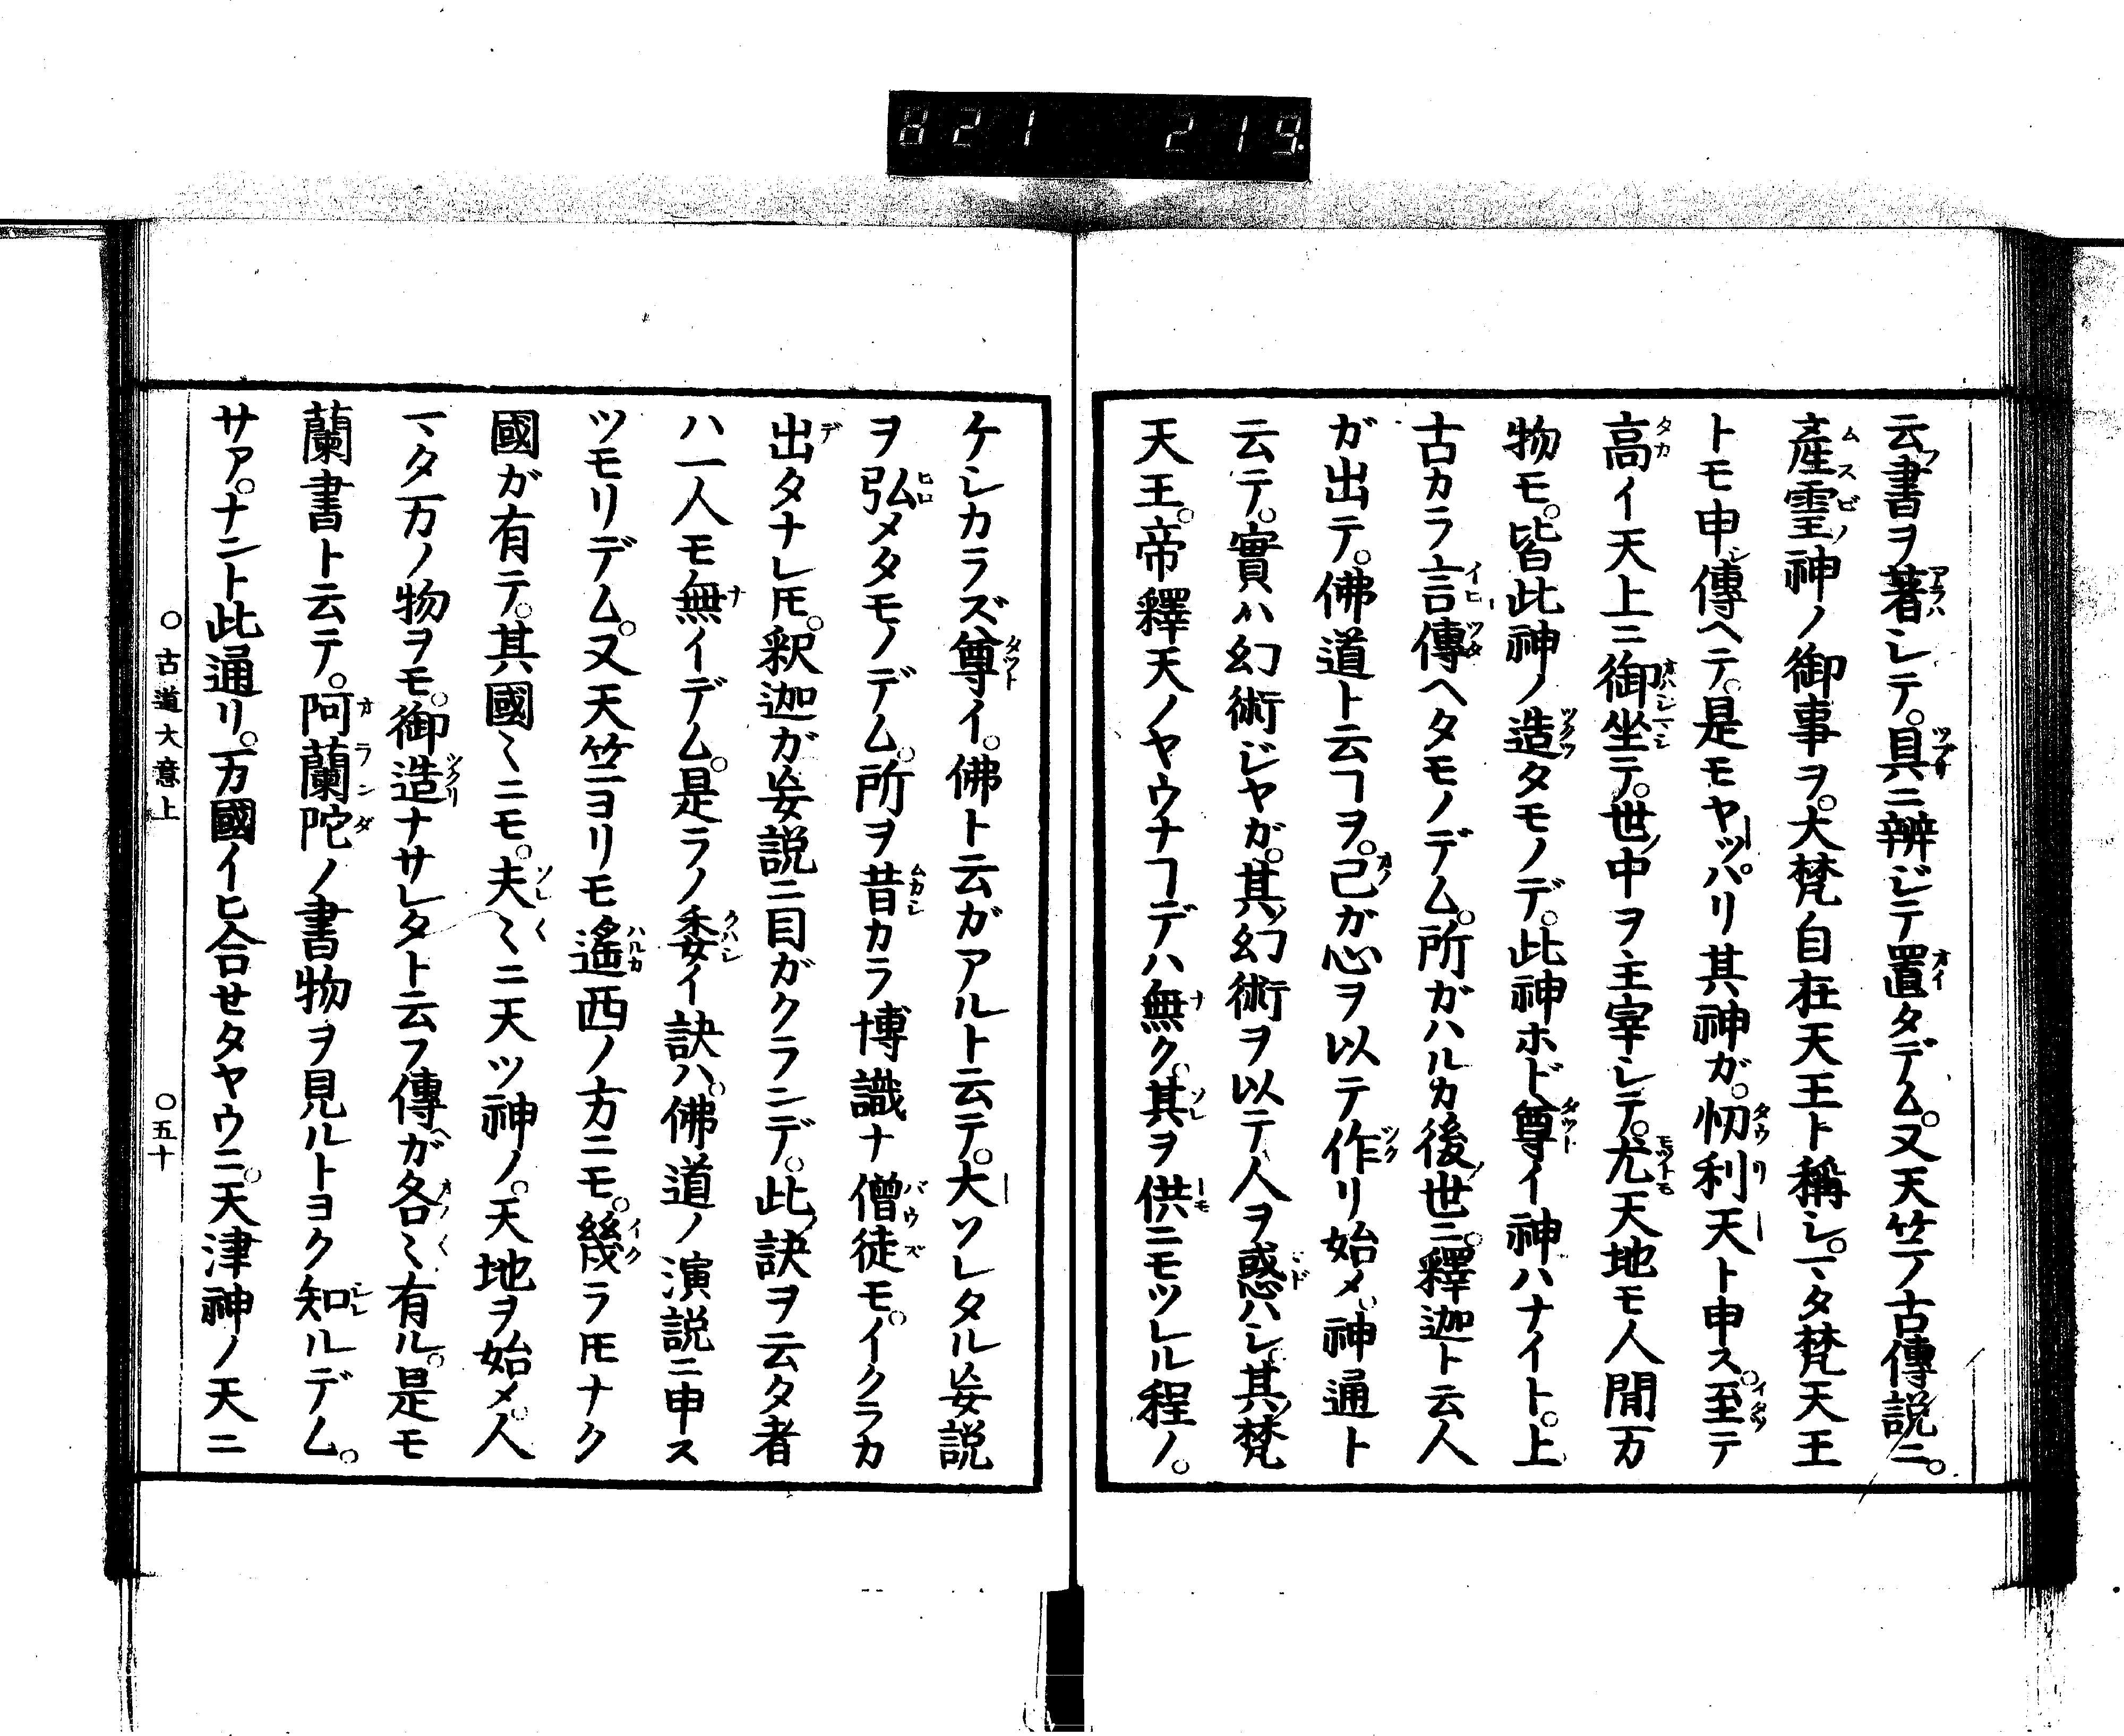 821 219.
云フ書ヲ著シテ。具ニ辨ジテ置タデム。又天竺ノ古傳説ニ。
產靈ノ神ノ御事ヲ。大梵自在天王ト稱シ。マタ梵天王
トモ申シ傳ヘテ。是モヤッパリ其神ガ。忉利天ト申ス。至テ
高イ天上ニ御坐テ。世ノ中ヲ主宰シテ。尤天地モ人間万
物モ。皆此神ノ造タモノデ。此神ホド尊イ神ハナイト。上
古カラ言傳ヘタモノデム。所ガハルカ後ノ世ニ。釋迦ト云人
ガ出テ。佛道ト云ヿヲ。己ガ心ヲ以テ作リ始メ。神通ト
云テ。實ハ幻術ジヤガ。其ノ幻術ヲ以テ人ヲ惑ハシ。其ノ梵
天王。帝釋天ノヤウナヿデハ無ク。其ヲ供ニモツレル程ノ。
ケシカラズ尊イ。佛ト云ガアルト云テ。大ソレタル妄説
ヲ弘メタモノデム。所ヲ昔カラ博識ナ僧徒モ。イクラカ
出タナレ𪜈。釈迦ガ妄説ニ目ガクランデ。此ノ訣ヲ云タ者
ハ一人モ無イデム。是ラノ委イ訣ハ。佛道ノ演説ニ申ス
ツモリデム。又天竺ヨリモ遙西ノ方ニモ。幾ラ𪜈ナク
國ガ有テ。其國〻ニモ。夫〻ニ天ツ神ノ。天地ヲ始メ。人
マタ万ノ物ヲモ。御造ナサレタト云フ傳ヘガ各〻有ル。是モ
蘭書ト云テ。阿蘭陀ノ書物ヲ見ルトヨク知ルデム。
サア。ナント此通リ。万國イヒ合せタヤウニ。天津神ノ天ニ
○古道大意上 ○五十